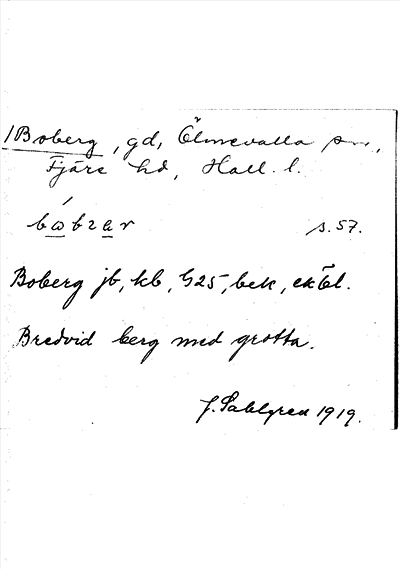 1 Boberg, gd, Ölmevalla sn,
Fjäre hd, Hall. l.
s. 57.
Boberg jb, kb, G25, bek,
Bredvid berg med grotta.
J. Sahlgren 1919.